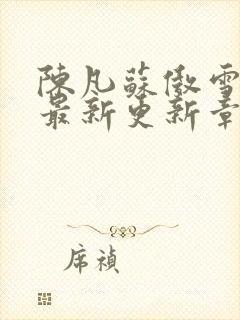 陳凡蘇傲雪
最新更新章
席禎